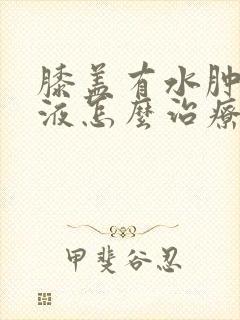 膝盖有水肿
液怎麼治療
甲斐谷忍